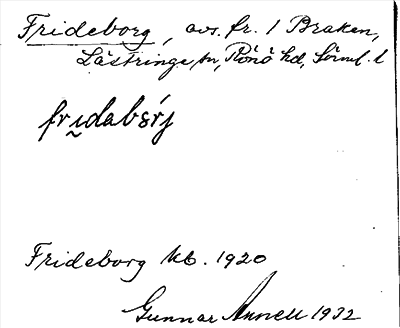 Frideborg, avs. fr. 1 Braken,
Lästringe sn, Rönö hd, Sörml. l
fridabsrj
Frideborg kb. 1920
Gunnar Annell 1932